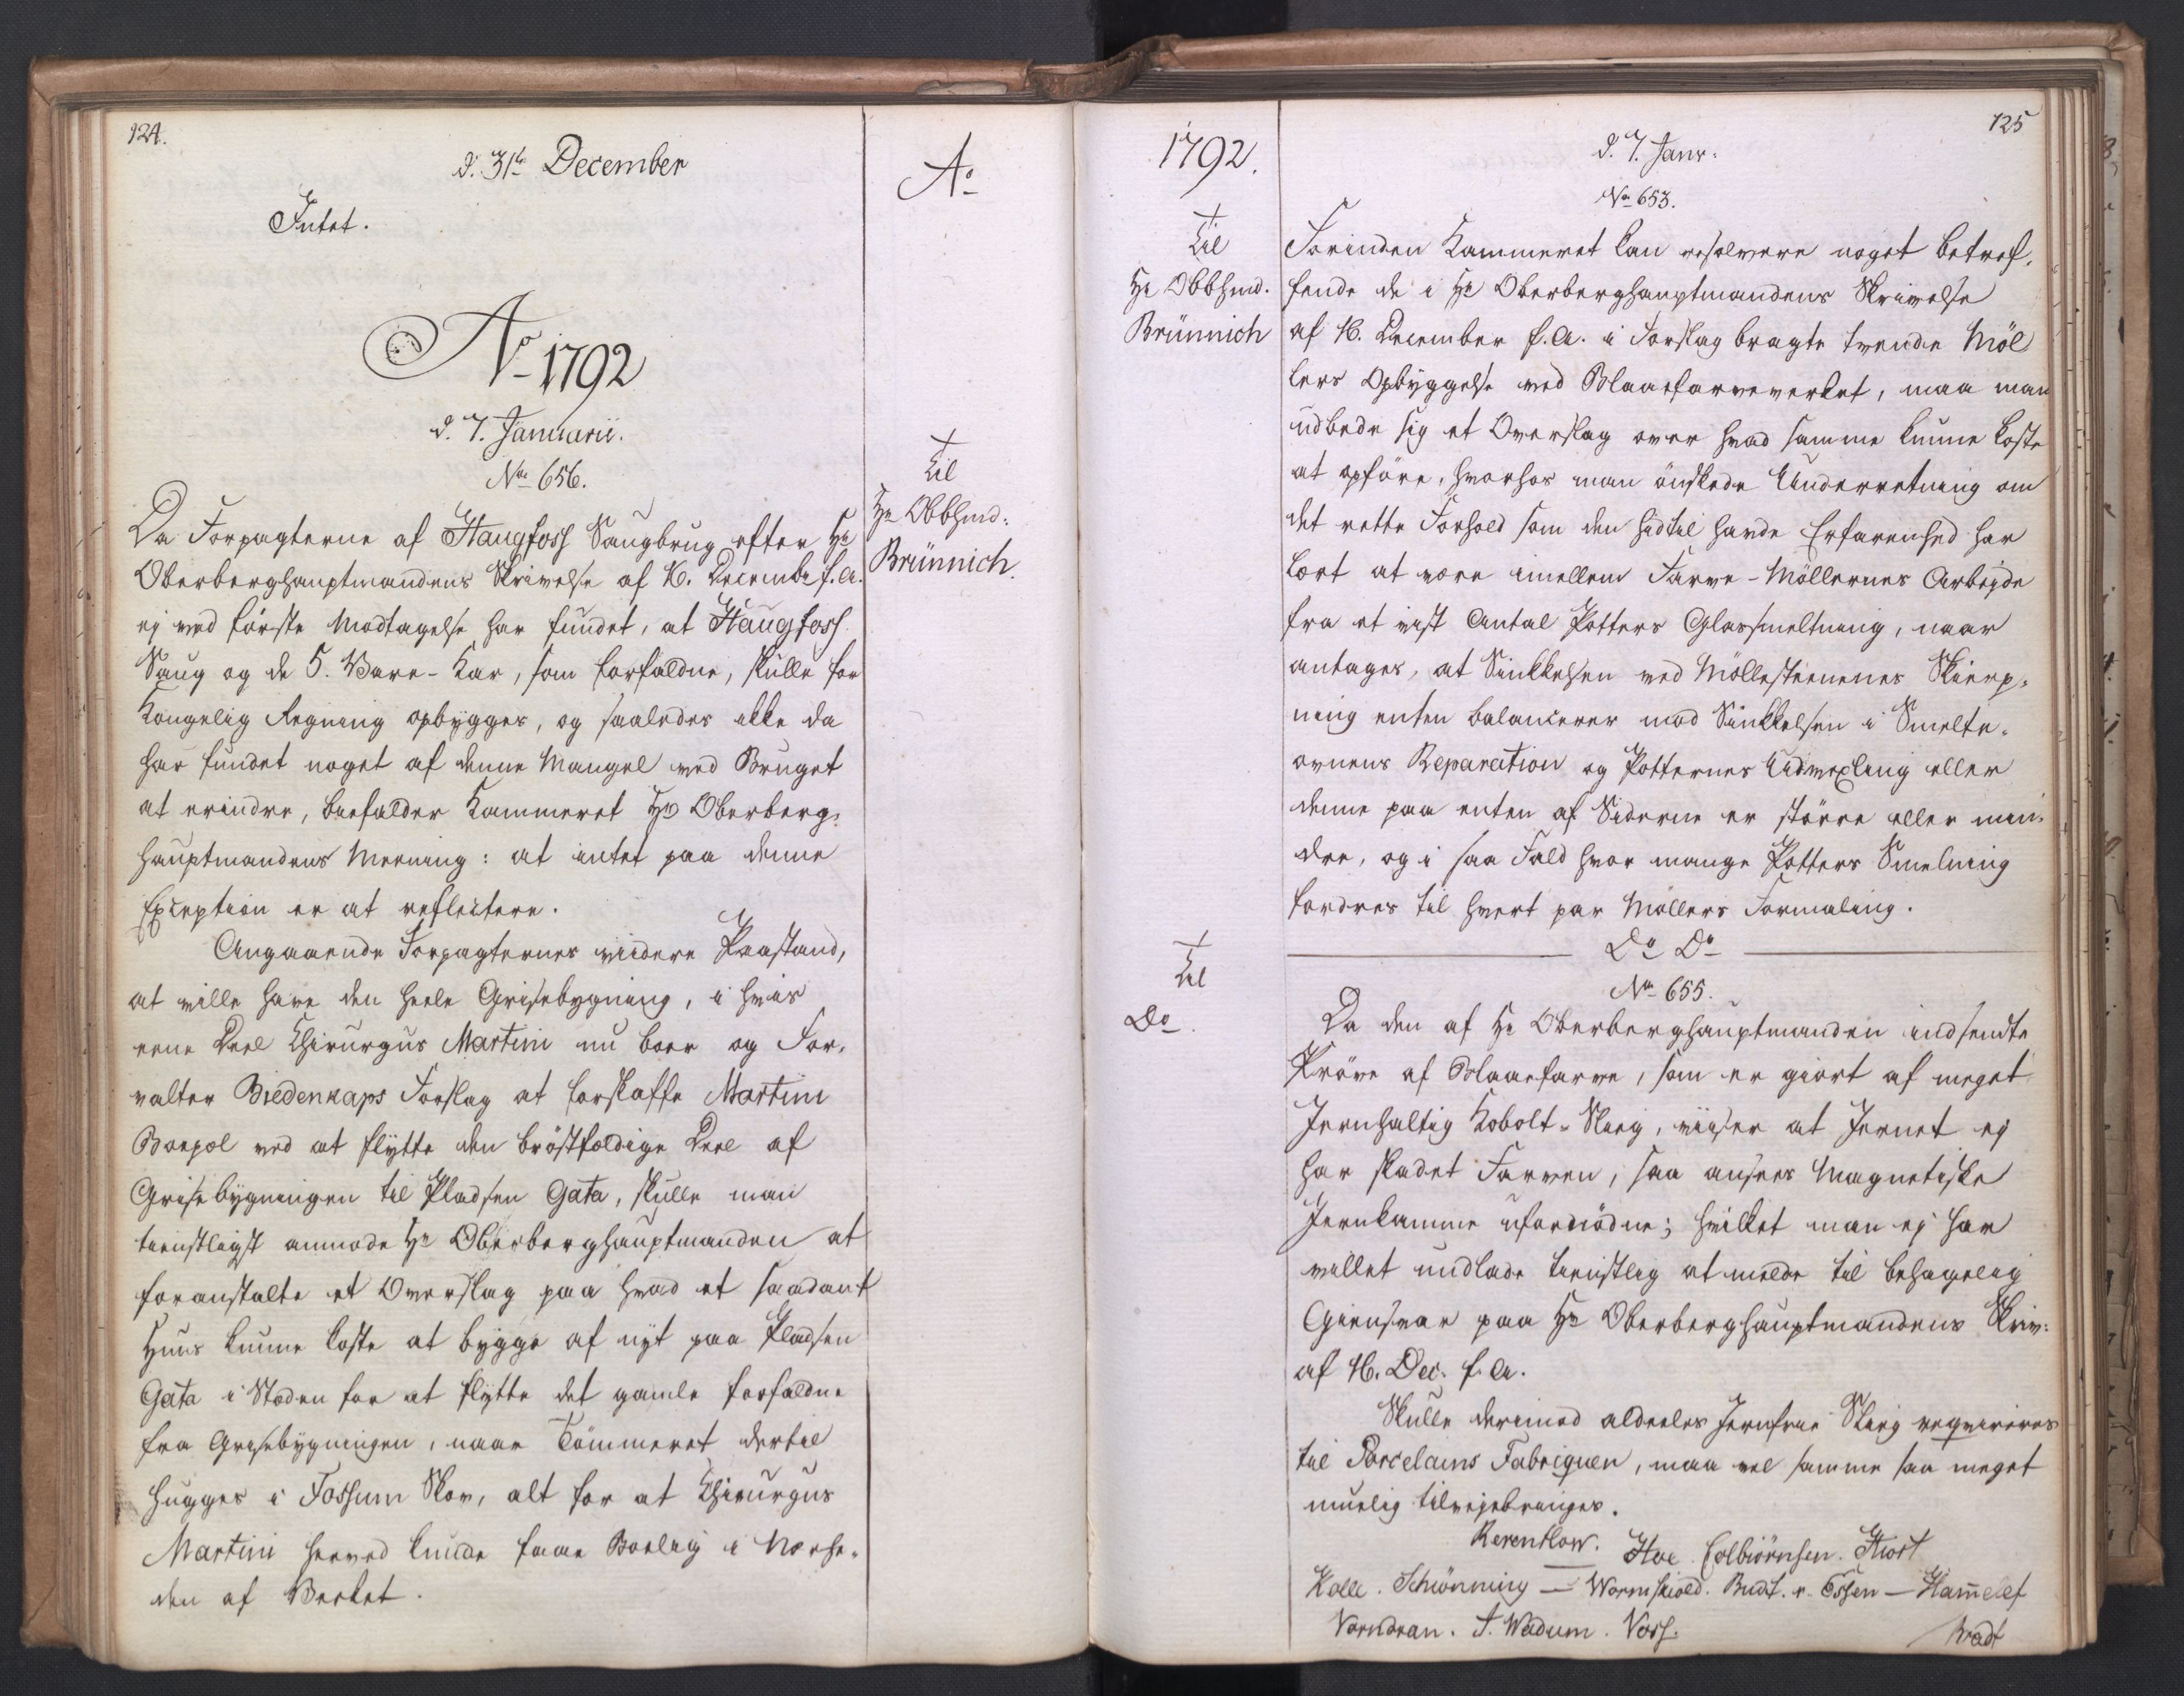 124.
d. 31te December
Intet.
Ao 1792
d. 7. Januarii.
No 656.
Da Forpagterne af Haugfoss Saugbrug efter Hr
Oberberghauptmandens Skrivelse af 16. Decembr f. a.
ej ved første Modtagelse har fundet, at Haugfoss
Saug og de 5. Vare-Kar, som forfaldne, skulle for
Kongelig Regning opbygges, og saaledes ikke da
har fundet noget af denne Mangel ved Bruget
at erindre, biefalder Kammeret Hr Oberberg-
hauptmandens Meening: at intet paa denne
Exception er at reflectere.
Angaaende Forpagternes viidere Paastand,
at ville have den heele Grisebygning, i hvis
eene Deel Chirurgus Martini nu boer og For-
valter Biedenkaps Forslag at forskaffe Martini
Boepæl ved at flytte den brøstfældige Deel af
Grisebygningen til Pladsen Gata, skulle man
tienstligst anmode Hr Oberberghauptmanden at
foranstalte et Overslag paa hvad et saadant
Huus kunne koste at bygge af nyt paa Pladsen
Gata i Stæden for at flytte det gamle forfaldne
fra Grisebygningen, naar Tømmeret dertil
hugges i Fossum Skov, alt for at Chirurgus
Martini herved kunde faae Boelig i Nærhe-
den af Verket.
Ao
Til
Hr Obbhmd:
Brünnich.
1792.
Til
Hr Obbhmd.
Brünnich
Til
Do.
125
d. 7. Janr:
No 653.
Forinden Kammeret kan resolvere noget betref-
fende de i Hr Oberberghauptmandens Skrivelse
af 16. December f. a. i Forslag bragte tvende Møl
lers Opbyggelse ved Blaaefarveverket, maa man
udbede sig et Overslag over hvad samme kunne koste
at opføre, hvorhos man ønskede Underretning om
det rette Forhold som den hidtil havde Erfarenhed har
lært at være imellem Farve-Møllernes Arbejde
fra et vist Antal Potters Glassmeltning, naar
antages, at Sinkkelsen ved Møllesteenenes Skierp-
ning enten balancerer mod Sinkkelsen i Smelte-
ovnens Reparation og Potternes Udvexling eller
denne paa enten af Siderne er større eller min-
dre, og i saa Fald hvor mange Potters Smeltning
fordres til hvert par Møllers Formaling.
Do Do
No 655.
Da den af Hr Oberberghauptmanden indsendte
Prøve af Blaaefarve, som er giort af meget
Jernhaltig Kobolt-Slieg, viiser at Jernet ej
har skadet Farven, saa ansees Magnetiske
Jernkamme ufornødne; hvilket man ej har
villet undlade tienstlig at melde til behagelig
Giensvar paa Hr Oberberghauptmandens Skriv:
af 16. Dec. f. a.
Skulle derimod aldeeles Jernfrie Slieg reqvireres
til Porcelains Fabriquen, maa vel samme saa meget
muelig tilvejebringes.
Reventlow. Hoe. Colbiørnsen. Hiort
Kolle. Schiønning — Wormskiold. Budt. v. Essen — Ham̄elef
Vorndran. T. Wadum. Voss.
Bradt